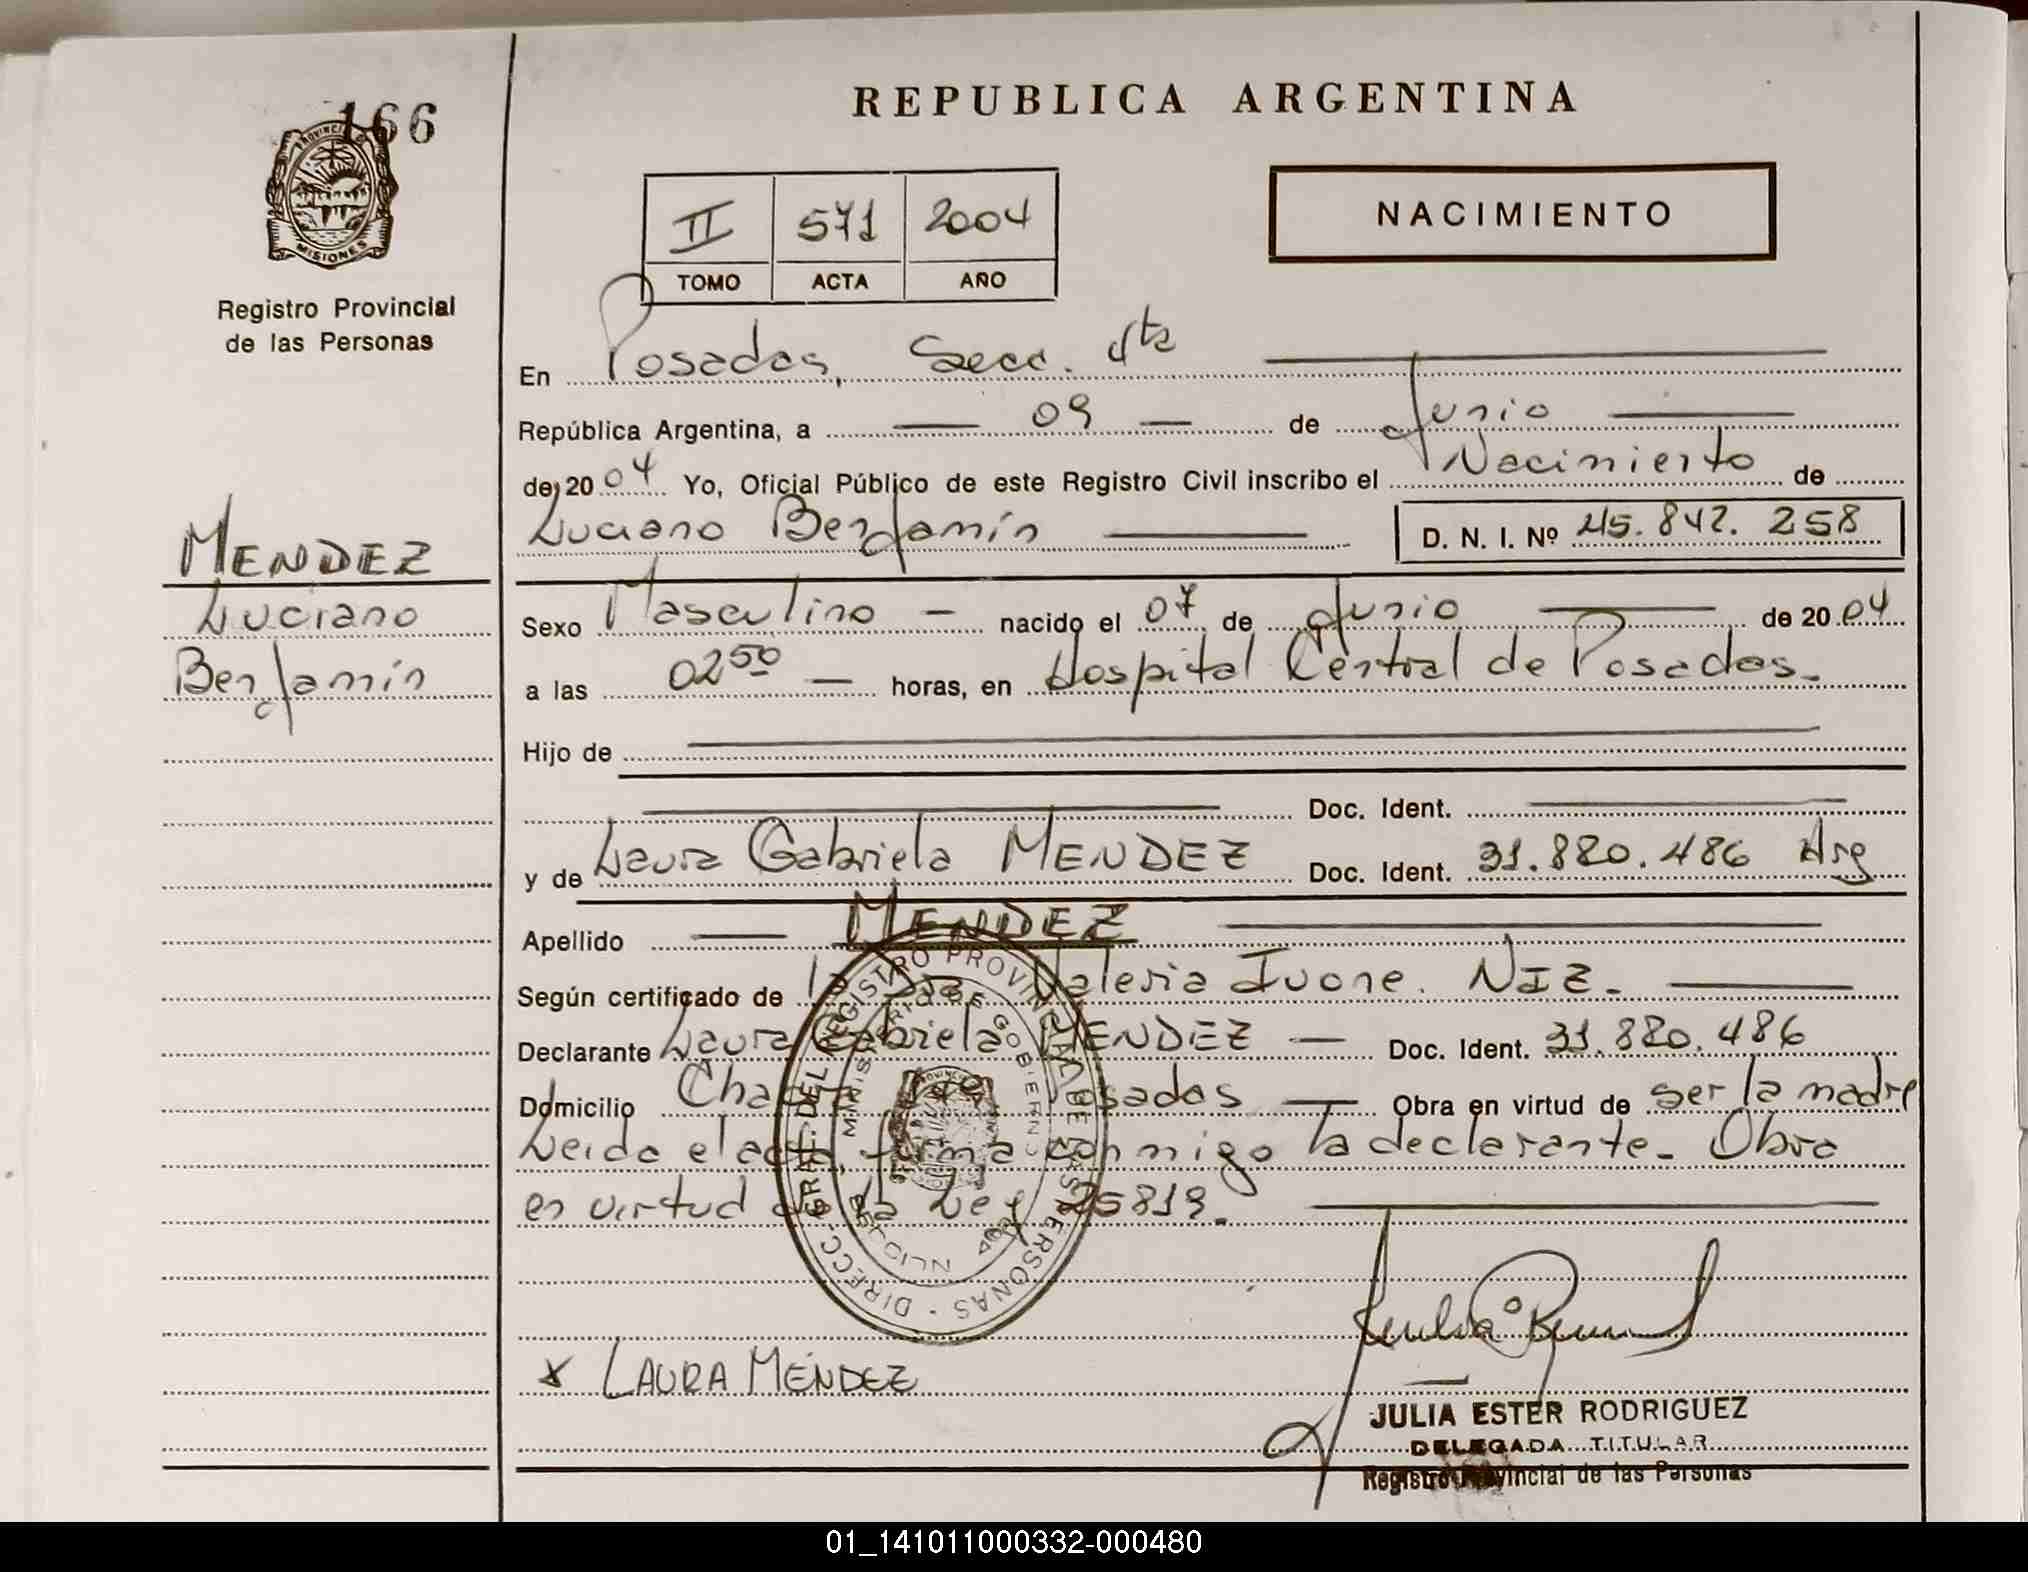 166
PROVINCIA DE
MISIONES
Registro Provincial
de las Personas
MENDEZ
Luciano
Benjamín
REPUBLICA ARGENTINA
II 571 2004
TOMO ACTA AÑO
NACIMIENTO
En Posadas, Secc. 4ta
República Argentina, a 09 de Junio
de 2004 Yo, Oficial Público de este Registro Civil inscribo el Nacimiento de
Luciano Benjamín D. N. I. Nº 45.842.258
Sexo Masculino nacido el 07 de Junio de 2004
a las 02 50 horas, en Hospital Central de Posadas.
Hijo de
Doc. Ident.
y de Laura Gabriela MENDEZ Doc. Ident. 31.820.486 Arg
Apellido MENDEZ
Según certificado de la Dra Valeria Ivone. NIZ.
Declarante Laura Gabriela MENDEZ Doc. Ident. 31.820.486
Domicilio Posadas Obra en virtud de ser la madre
Leida el acta, firma conmigo la declarante. Obra
en virtud de la Ley 25819.
DIRECC. GRAL. DEL REGISTRO PROVINCIAL DE LAS PERSONAS
MINISTERIO DE GOBIERNO
x LAURA MÉNDEZ
JULIA ESTER RODRIGUEZ
DELEGADA TITULAR
Registro Provincial de las Personas
01_141011000332-000480